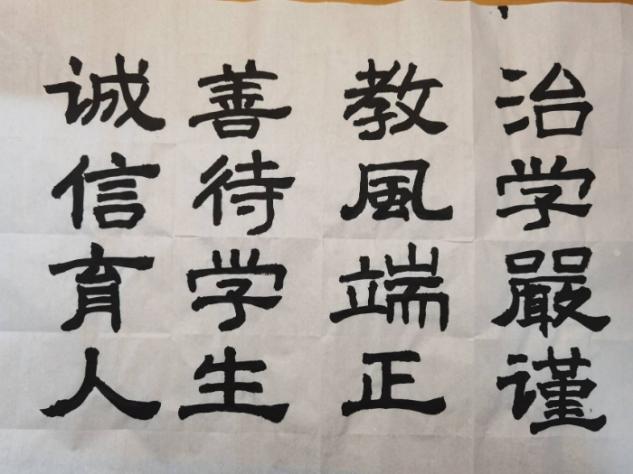 治学嚴谨
教風端正
善待学生
诚信育人